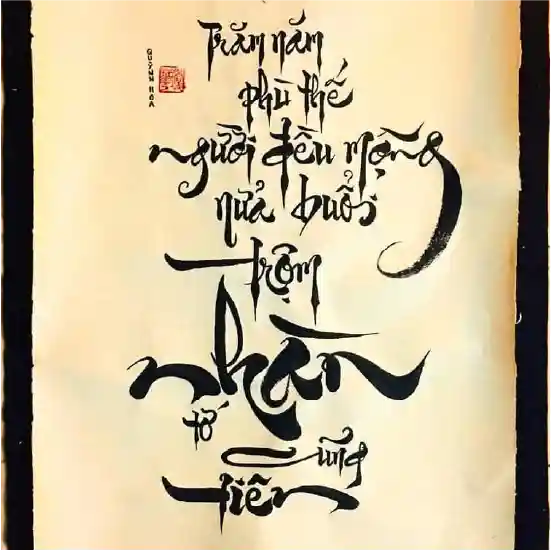 Trăm năm
phù thế
người đều mộng
nửa buổi
trộm
nhàn
tớ cũng
tiên
QUỲNH HOA